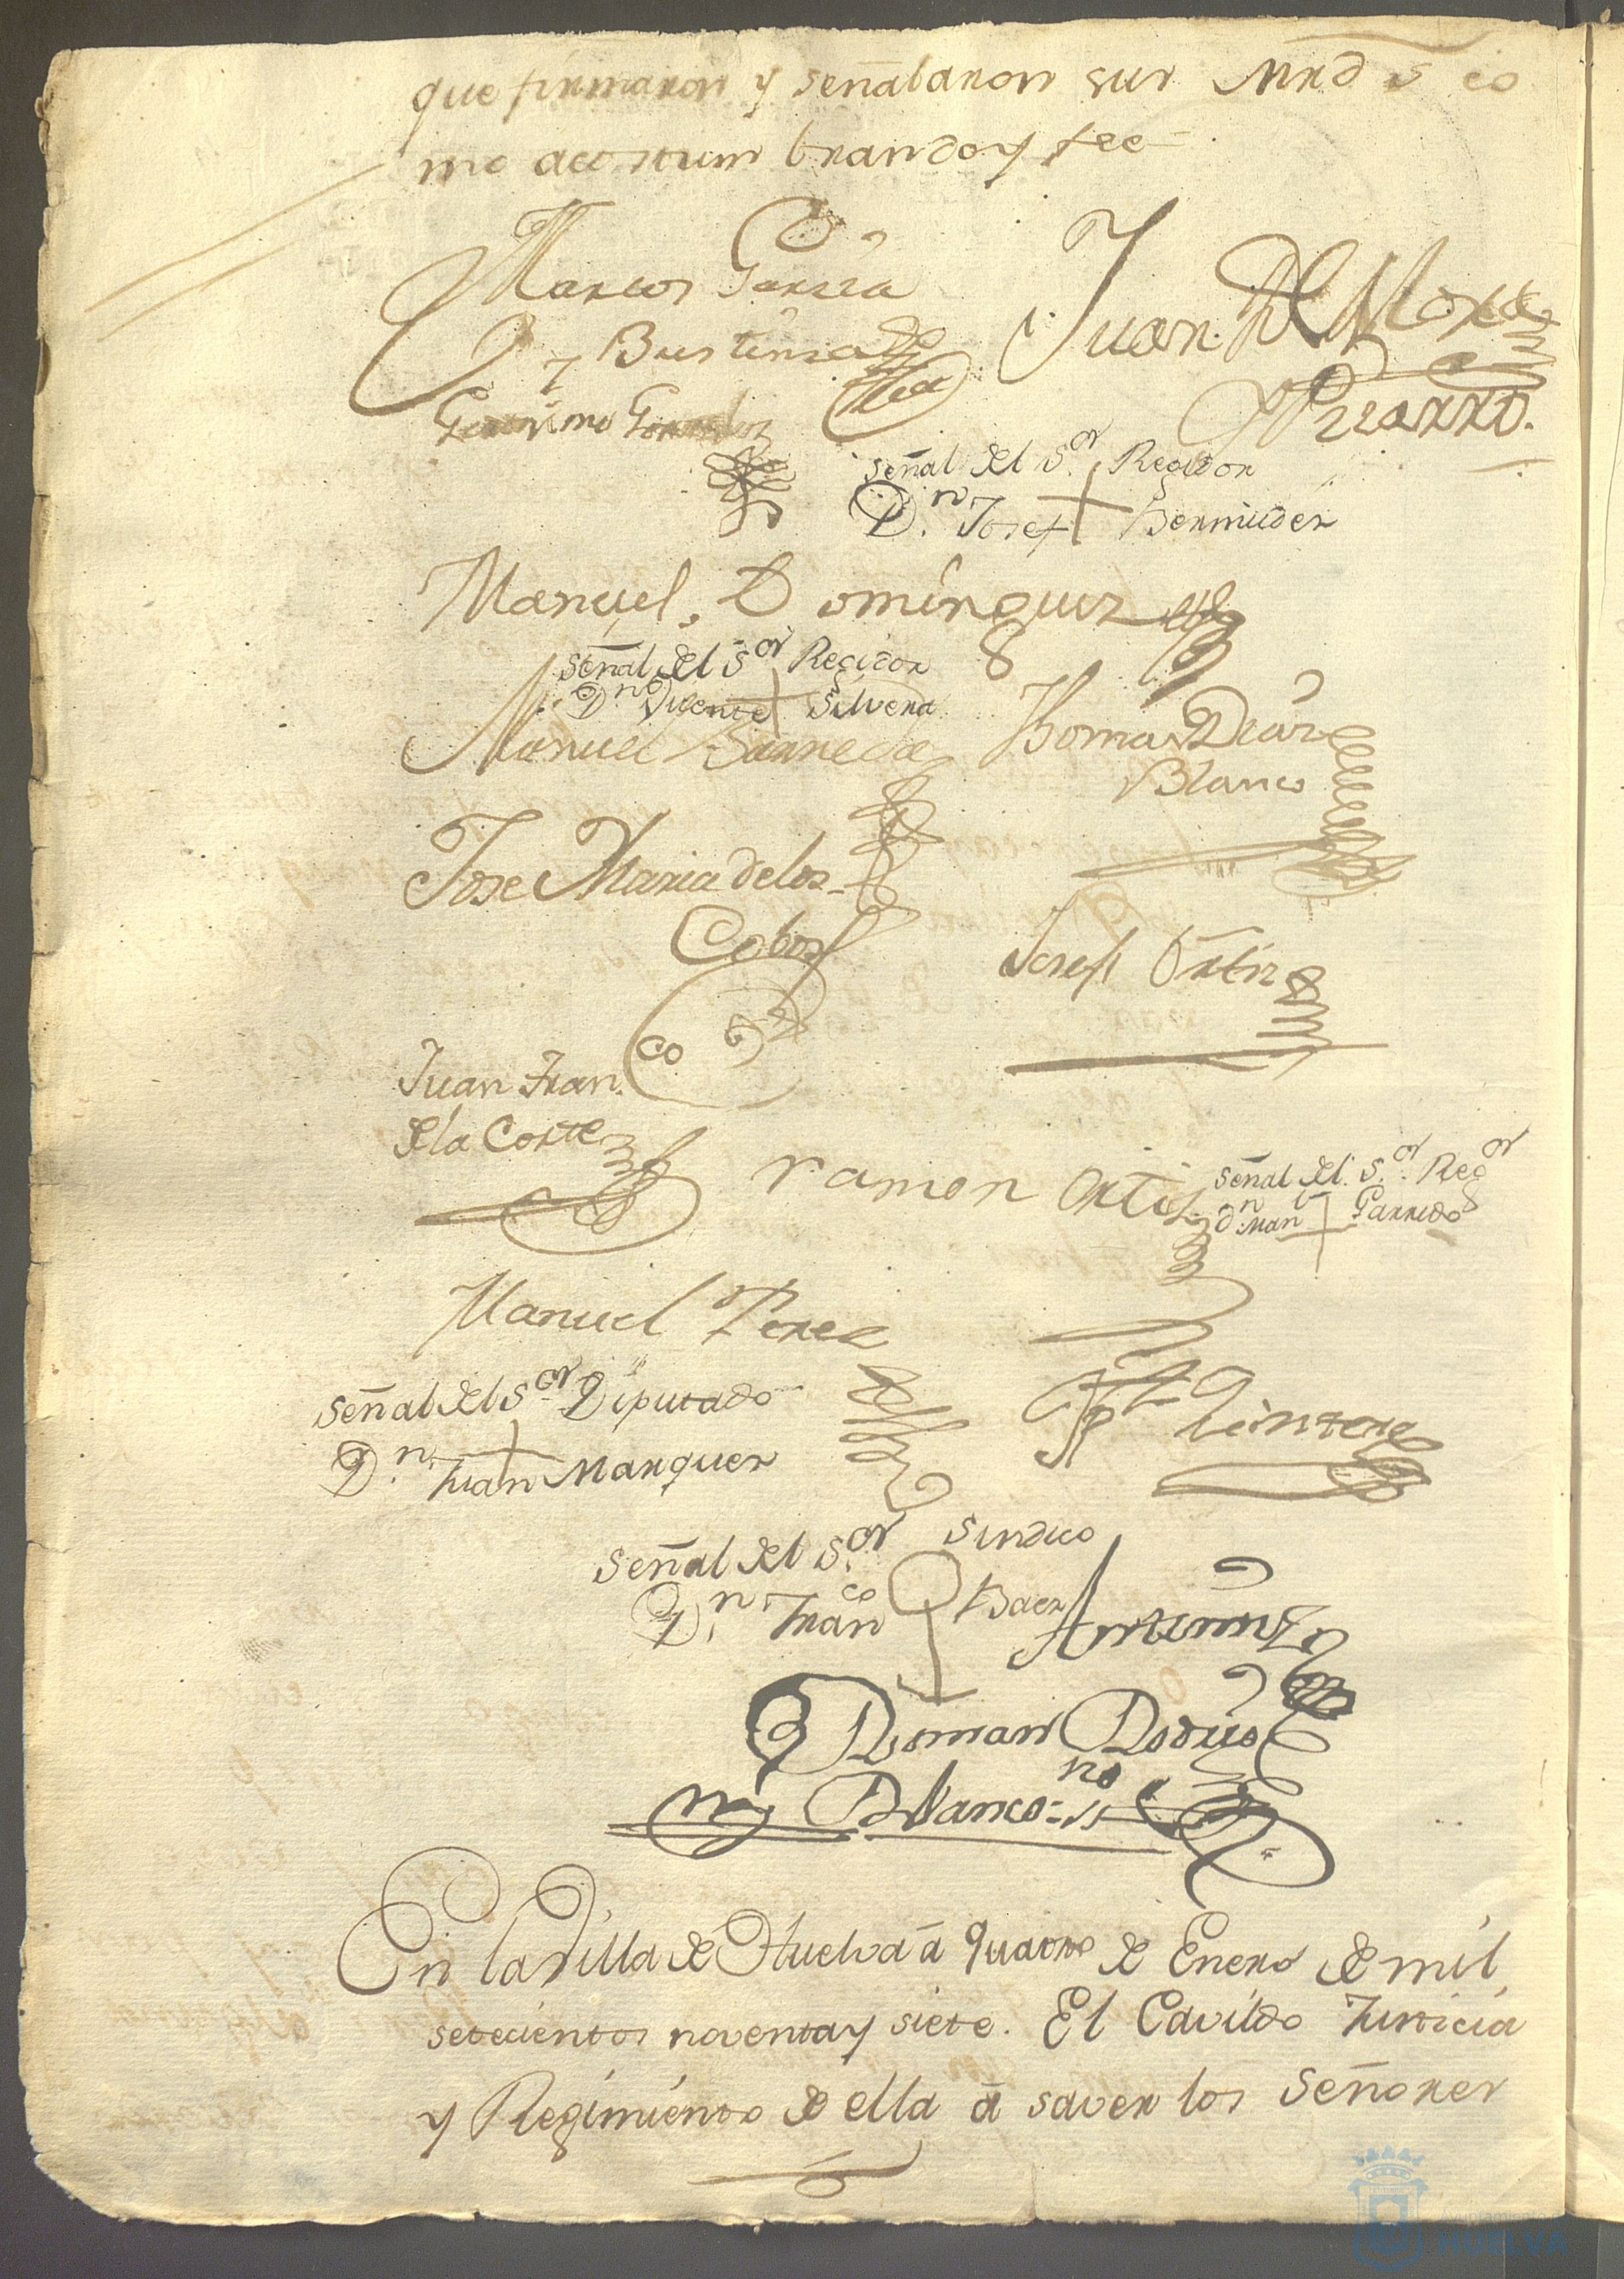 que firmaron y señalaron sus Mrds co
mo acostumbran doy fee=
Marcos Garsia
y Bustinsa
Juan De Mora
Pizarro.
Geronimo Gonzalez
Señal del S.or Regidor
D.n Josef Bermudez
Manuel Dominguez
Señal del S.or Regidor
D.n Vicente Silvera
Manuel Barreda
Thomas Diaz
Blanco
Jose Maria de los
Cobos
Josef Ortiz
Juan Fran.co
de la Corte
ramon Ortiz
Señal del S.or Reg.or
d.n Man.l Garrido
Manuel Perez
Señal del S.or Diputado
D.n Juan Marquez
Quintero
Señal del S.or Sindico
D.n Fran.co Baez
Ante mi
Roman Rodrig
Blanco
En la Villa de Huelva à quatro de Enero de mil
setecientos noventa y siete. El Cavildo Justicia
y Regimiento de ella à saver los Señores
HUELVA